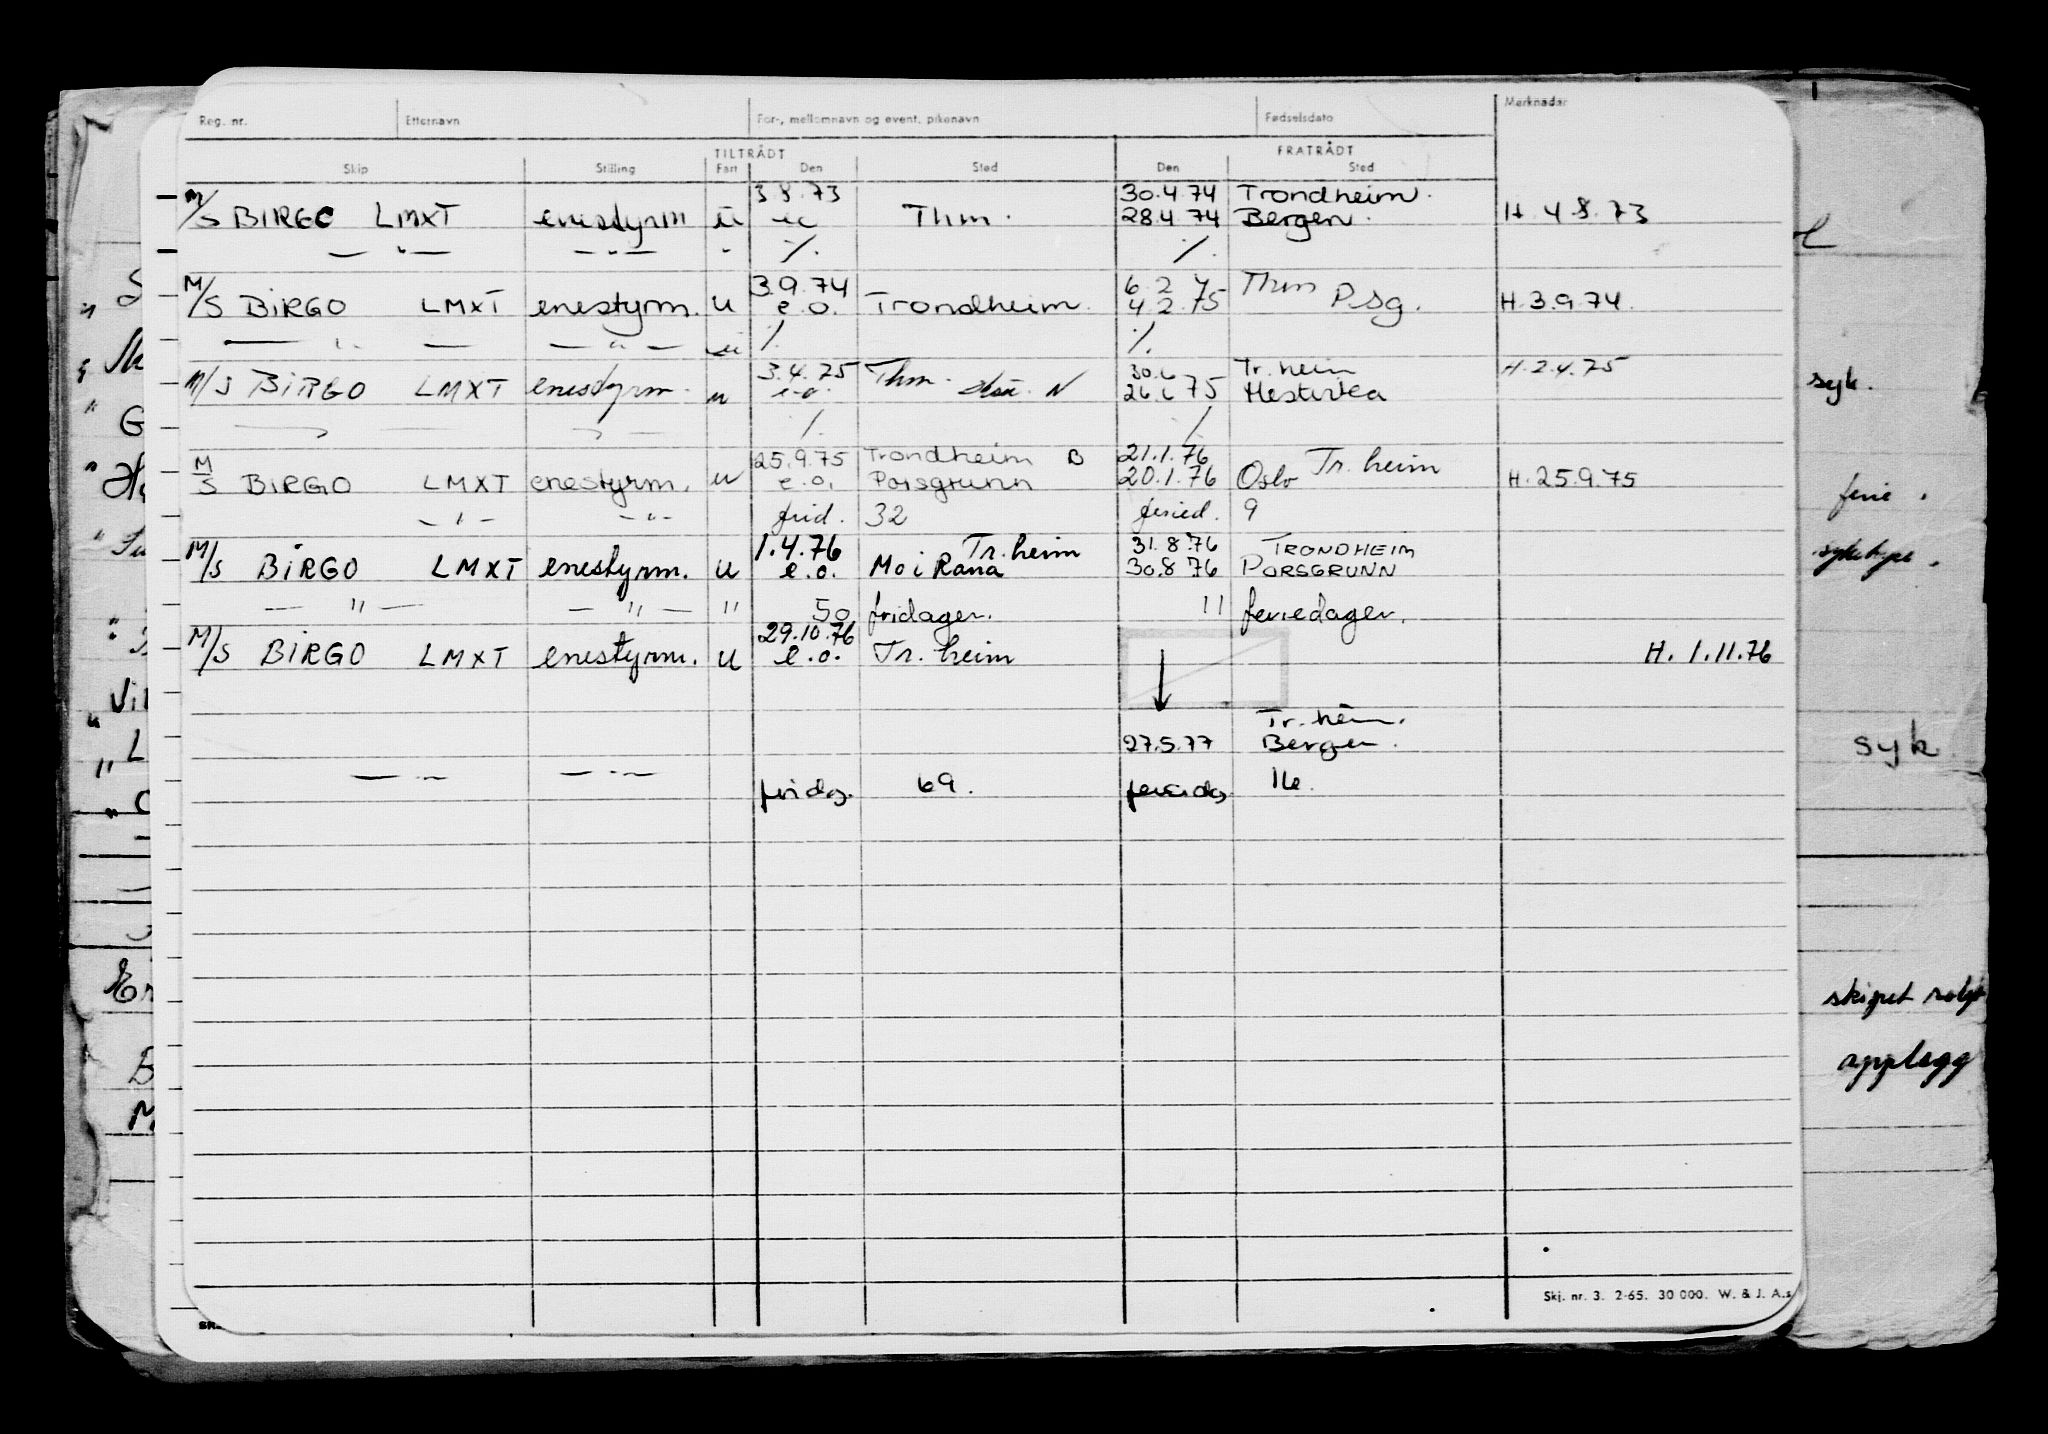 Reg. nr. Etternavn For-, mellomnavn og event. pikenavn Fødselsdato Merknader
TILTRÅDT FRATRÅDT
Skip Stilling Fart Den Sted Den Sted
3.8.73 30.4.74 Trondheim.
M/S BIRGO LMXT enestyrm u Thm. 28.4.74 Bergen. H. 4.8.73
— " — — " — " /. /.
3.9.74 6.2.75 Thm
M/S BIRGO LMXT enestyrm. u e.o. Trondheim. 4.2.75 P.sg. H. 3.9.74.
— " — — " — /. /.
3.4.75 Thm. Tr. heim H. 2.4.75
M/S BIRGO LMXT enestyrm. u e.o. N 26.6.75 syk.
/. /.
25.9.75 Trondheim B 21.1.76 Tr. heim
M/S BIRGO LMXT enestyrm. u e.o. Porsgrunn 20.1.76 Oslo H. 25.9.75 ferie.
— " — — " — frid. 32 feried. 9
1.4.76 Tr. heim 31.8.76 TRONDHEIM
M/S BIRGO LMXT enestyrm. u e.o. Mo i Rana 30.8.76 PORSGRUNN
— " — — " — " 50 fridager. 11 feriedager.
29.10.76
M/S BIRGO LMXT enestyrm. u e.o. Tr. heim H. 1.11.76
Tr. heim.
27.5.77 Bergen. syk
— " — — " — fridg. 69. feriedg 16.
skipet solgt
opplegg
Skj. nr. 3. 2-65. 30 000. W. & J. A.s